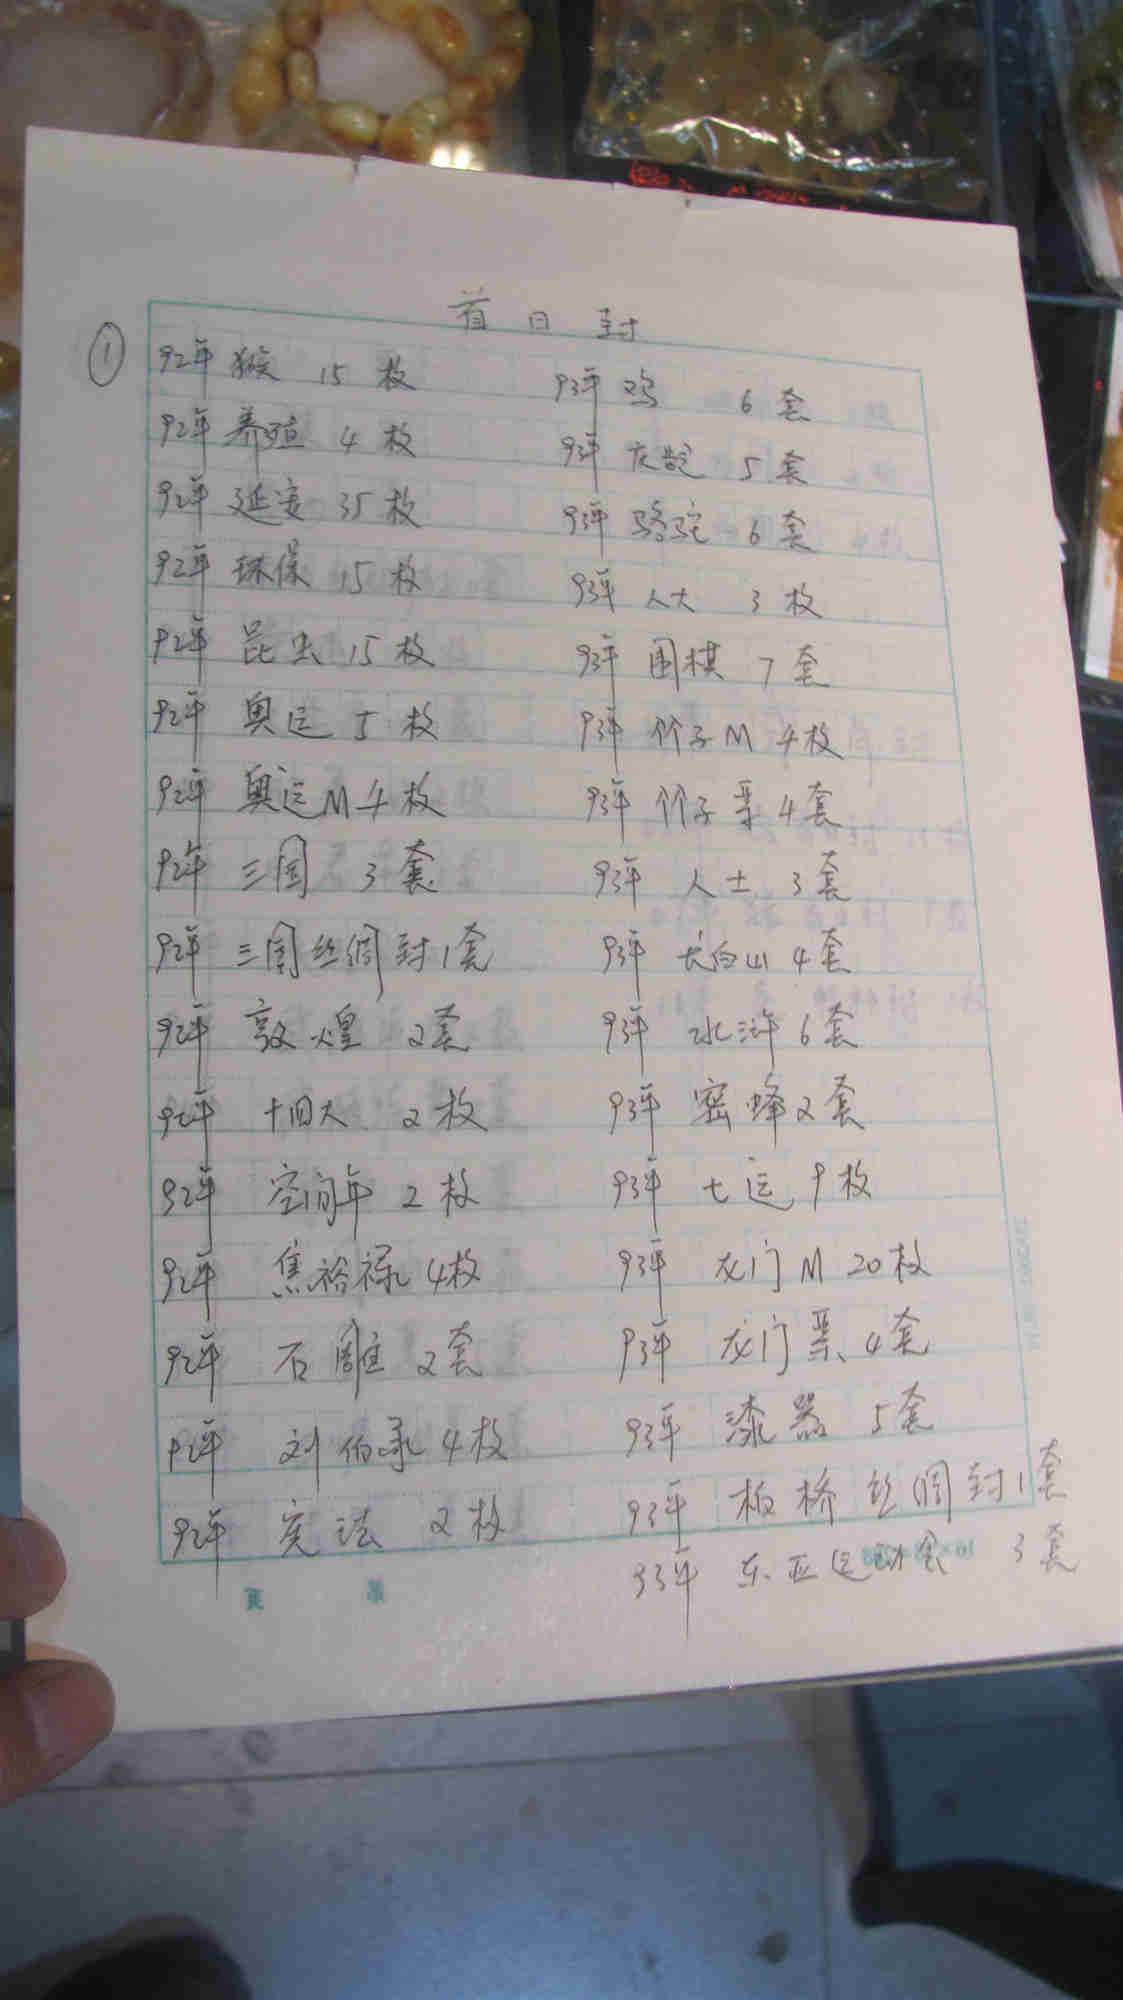 首日封
①
92年 猴 15枚
92年 养殖 4枚
92年 延安 35枚
92年 环保 15枚
92年 昆虫 15枚
92年 奥运 5枚
92年 奥运M 4枚
92年 三国 3套
92年 三国丝绸封 1套
92年 敦煌 2套
92年 十四大 2枚
92年 空间年 2枚
92年 焦裕禄 4枚
92年 石雕 2套
92年 刘伯承 4枚
92年 宪法 2枚
93年 鸡 6套
93年 5套
93年 骆驼 6套
93年 人大 3枚
93年 围棋 7套
93年 竹子M 4枚
93年 竹子票 4套
93年 人士 3套
93年 长白山 4套
93年 水浒 6套
93年 密蜂 2套
93年 七运 9枚
93年 龙门M 20枚
93年 龙门票 4套
93年 漆器 5套
93年 板桥丝绸封 1套
93年 东亚运动会 3套